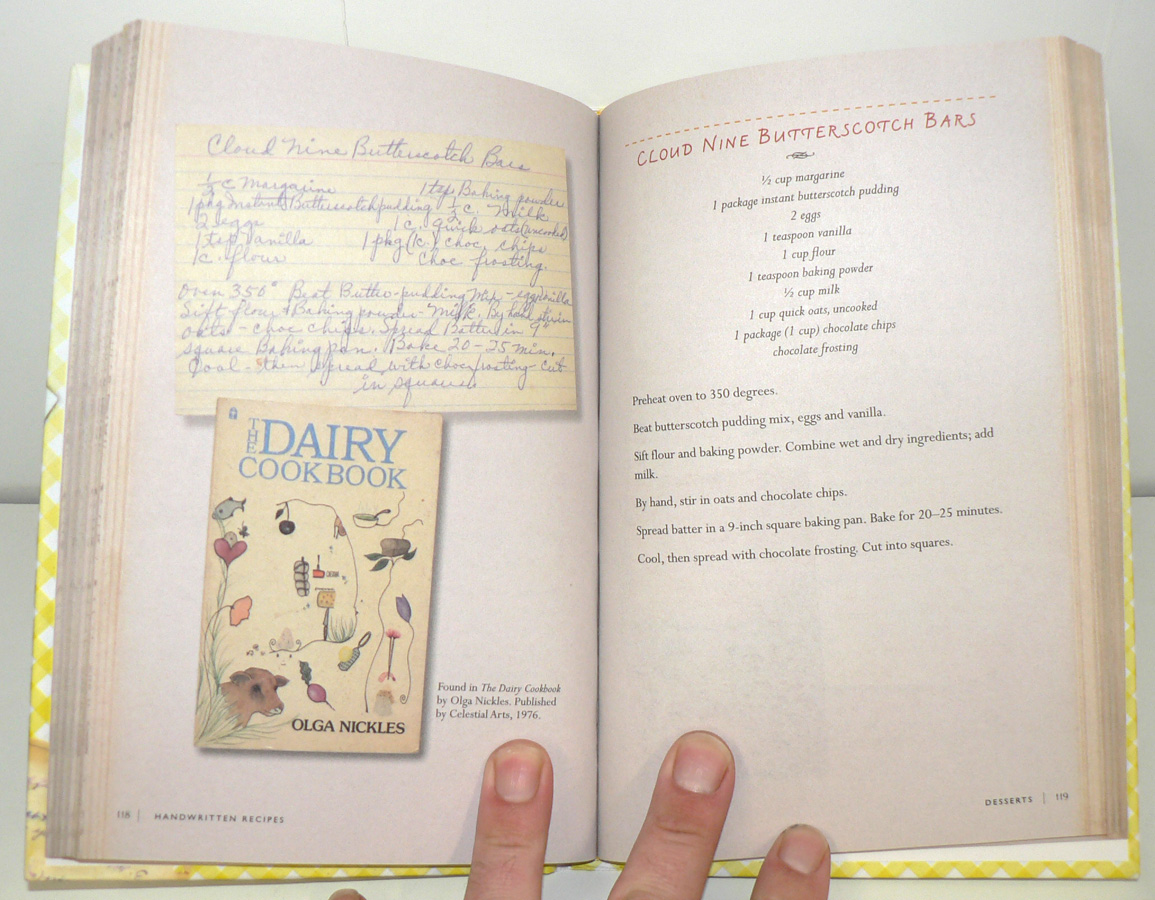 Cloud Nine Butterscotch Bars
½ c Margarine 1 tsp Baking powder
1 pkg Instant Butterscotch pudding ½ c. Milk
2 eggs 1 c. quick oats (uncooked)
1 tsp Vanilla 1 pkg (1c.) choc. chips
1 c. flour Choc frosting.
Oven 350° Beat Butter-pudding Mix - eggs, vanilla
Sift flour + Baking powder - Milk. By hand stir in
oats - choc chips. Spread Batter in 9"
square Baking pan. Bake 20-25 min.
Cool - then spread with choc frosting - cut
in squares.
THE DAIRY
COOKBOOK
OLGA NICKLES
Found in The Dairy Cookbook
by Olga Nickles. Published
by Celestial Arts, 1976.
118 | HANDWRITTEN RECIPES
CLOUD NINE BUTTERSCOTCH BARS
½ cup margarine
1 package instant butterscotch pudding
2 eggs
1 teaspoon vanilla
1 cup flour
1 teaspoon baking powder
½ cup milk
1 cup quick oats, uncooked
1 package (1 cup) chocolate chips
chocolate frosting
Preheat oven to 350 degrees.
Beat butterscotch pudding mix, eggs and vanilla.
Sift flour and baking powder. Combine wet and dry ingredients; add
milk.
By hand, stir in oats and chocolate chips.
Spread batter in a 9-inch square baking pan. Bake for 20–25 minutes.
Cool, then spread with chocolate frosting. Cut into squares.
DESSERTS | 119